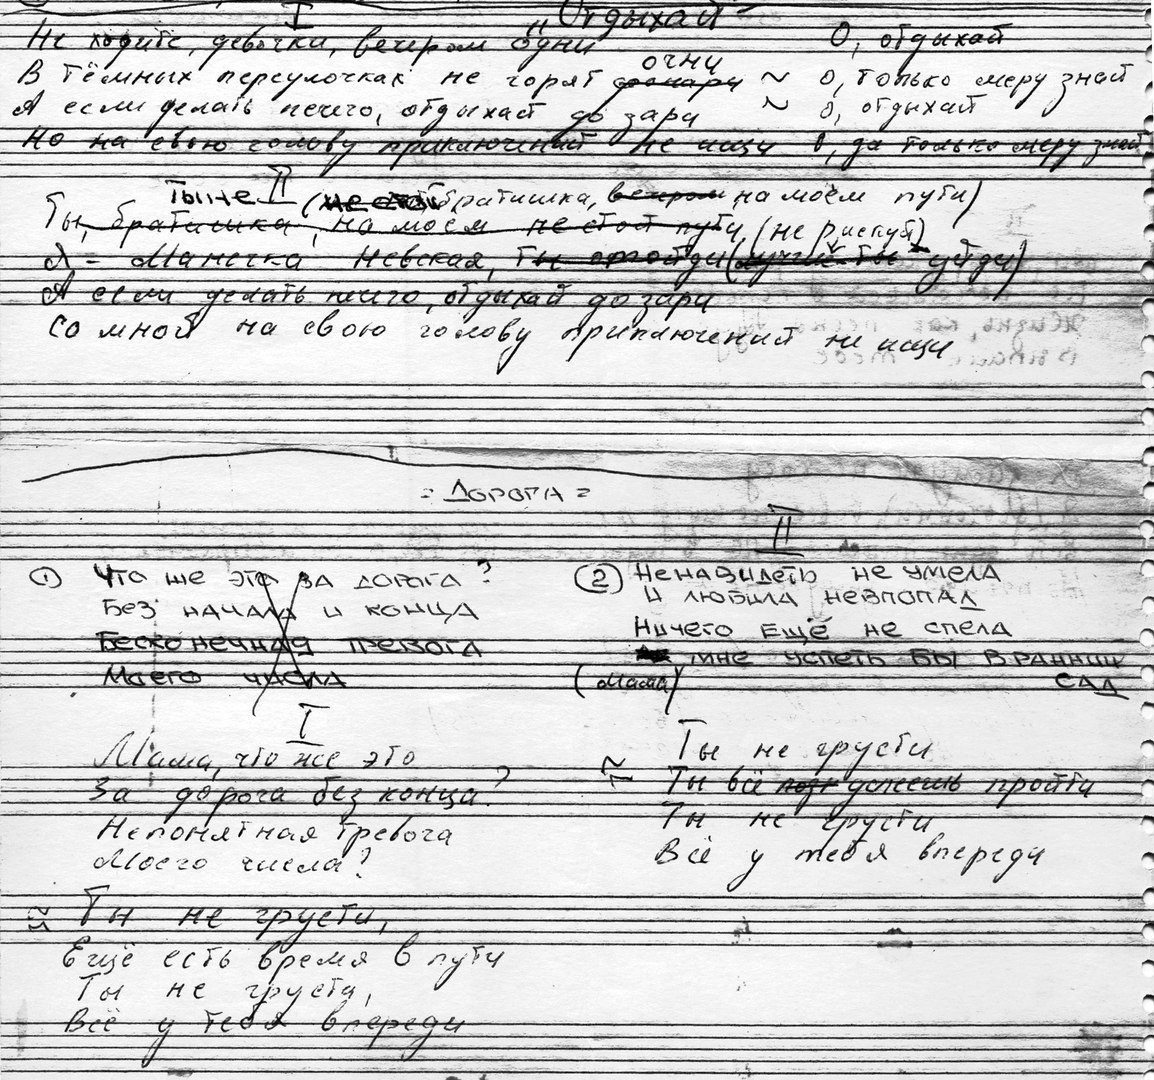 I
"Отдыхай"
Не ходите, девочки, вечером одни О, отдыхай
очи
В тёмных переулочках не горят фонари ~ О, только меру знай
А если делать нечего, отдыхай до зари ~ О, отдыхай
Но на свою голову приключений не ищи О, да только меру знай
II
Ты не (не стой братишка, вечером на моём пути)
Ты, братишка, на моём не стой пути (не рискуй)
Я - Манечка Невская, ты отойди (лучше ты уйди)
А если делать нечего, отдыхай до зари
Со мной на свою голову приключений не ищи
= Дорога =
① Что же это за дорога?
Без начала и конца
Бесконечная тревога
Моего числа
I
Мама, что же это
За дорога без конца?
Непонятная тревога
Моего числа?
Ты не грусти,
Ещё есть время в пути
Ты не грусти,
Всё у тебя впереди
II
② Ненавидеть не умела
И любила невпопад
Ничего ещё не спела
мне успеть бы в ранний
(Мама) сад
Ты не грусти
Ты всё должешь пройти
Ты не грусти
Всё у тебя впереди